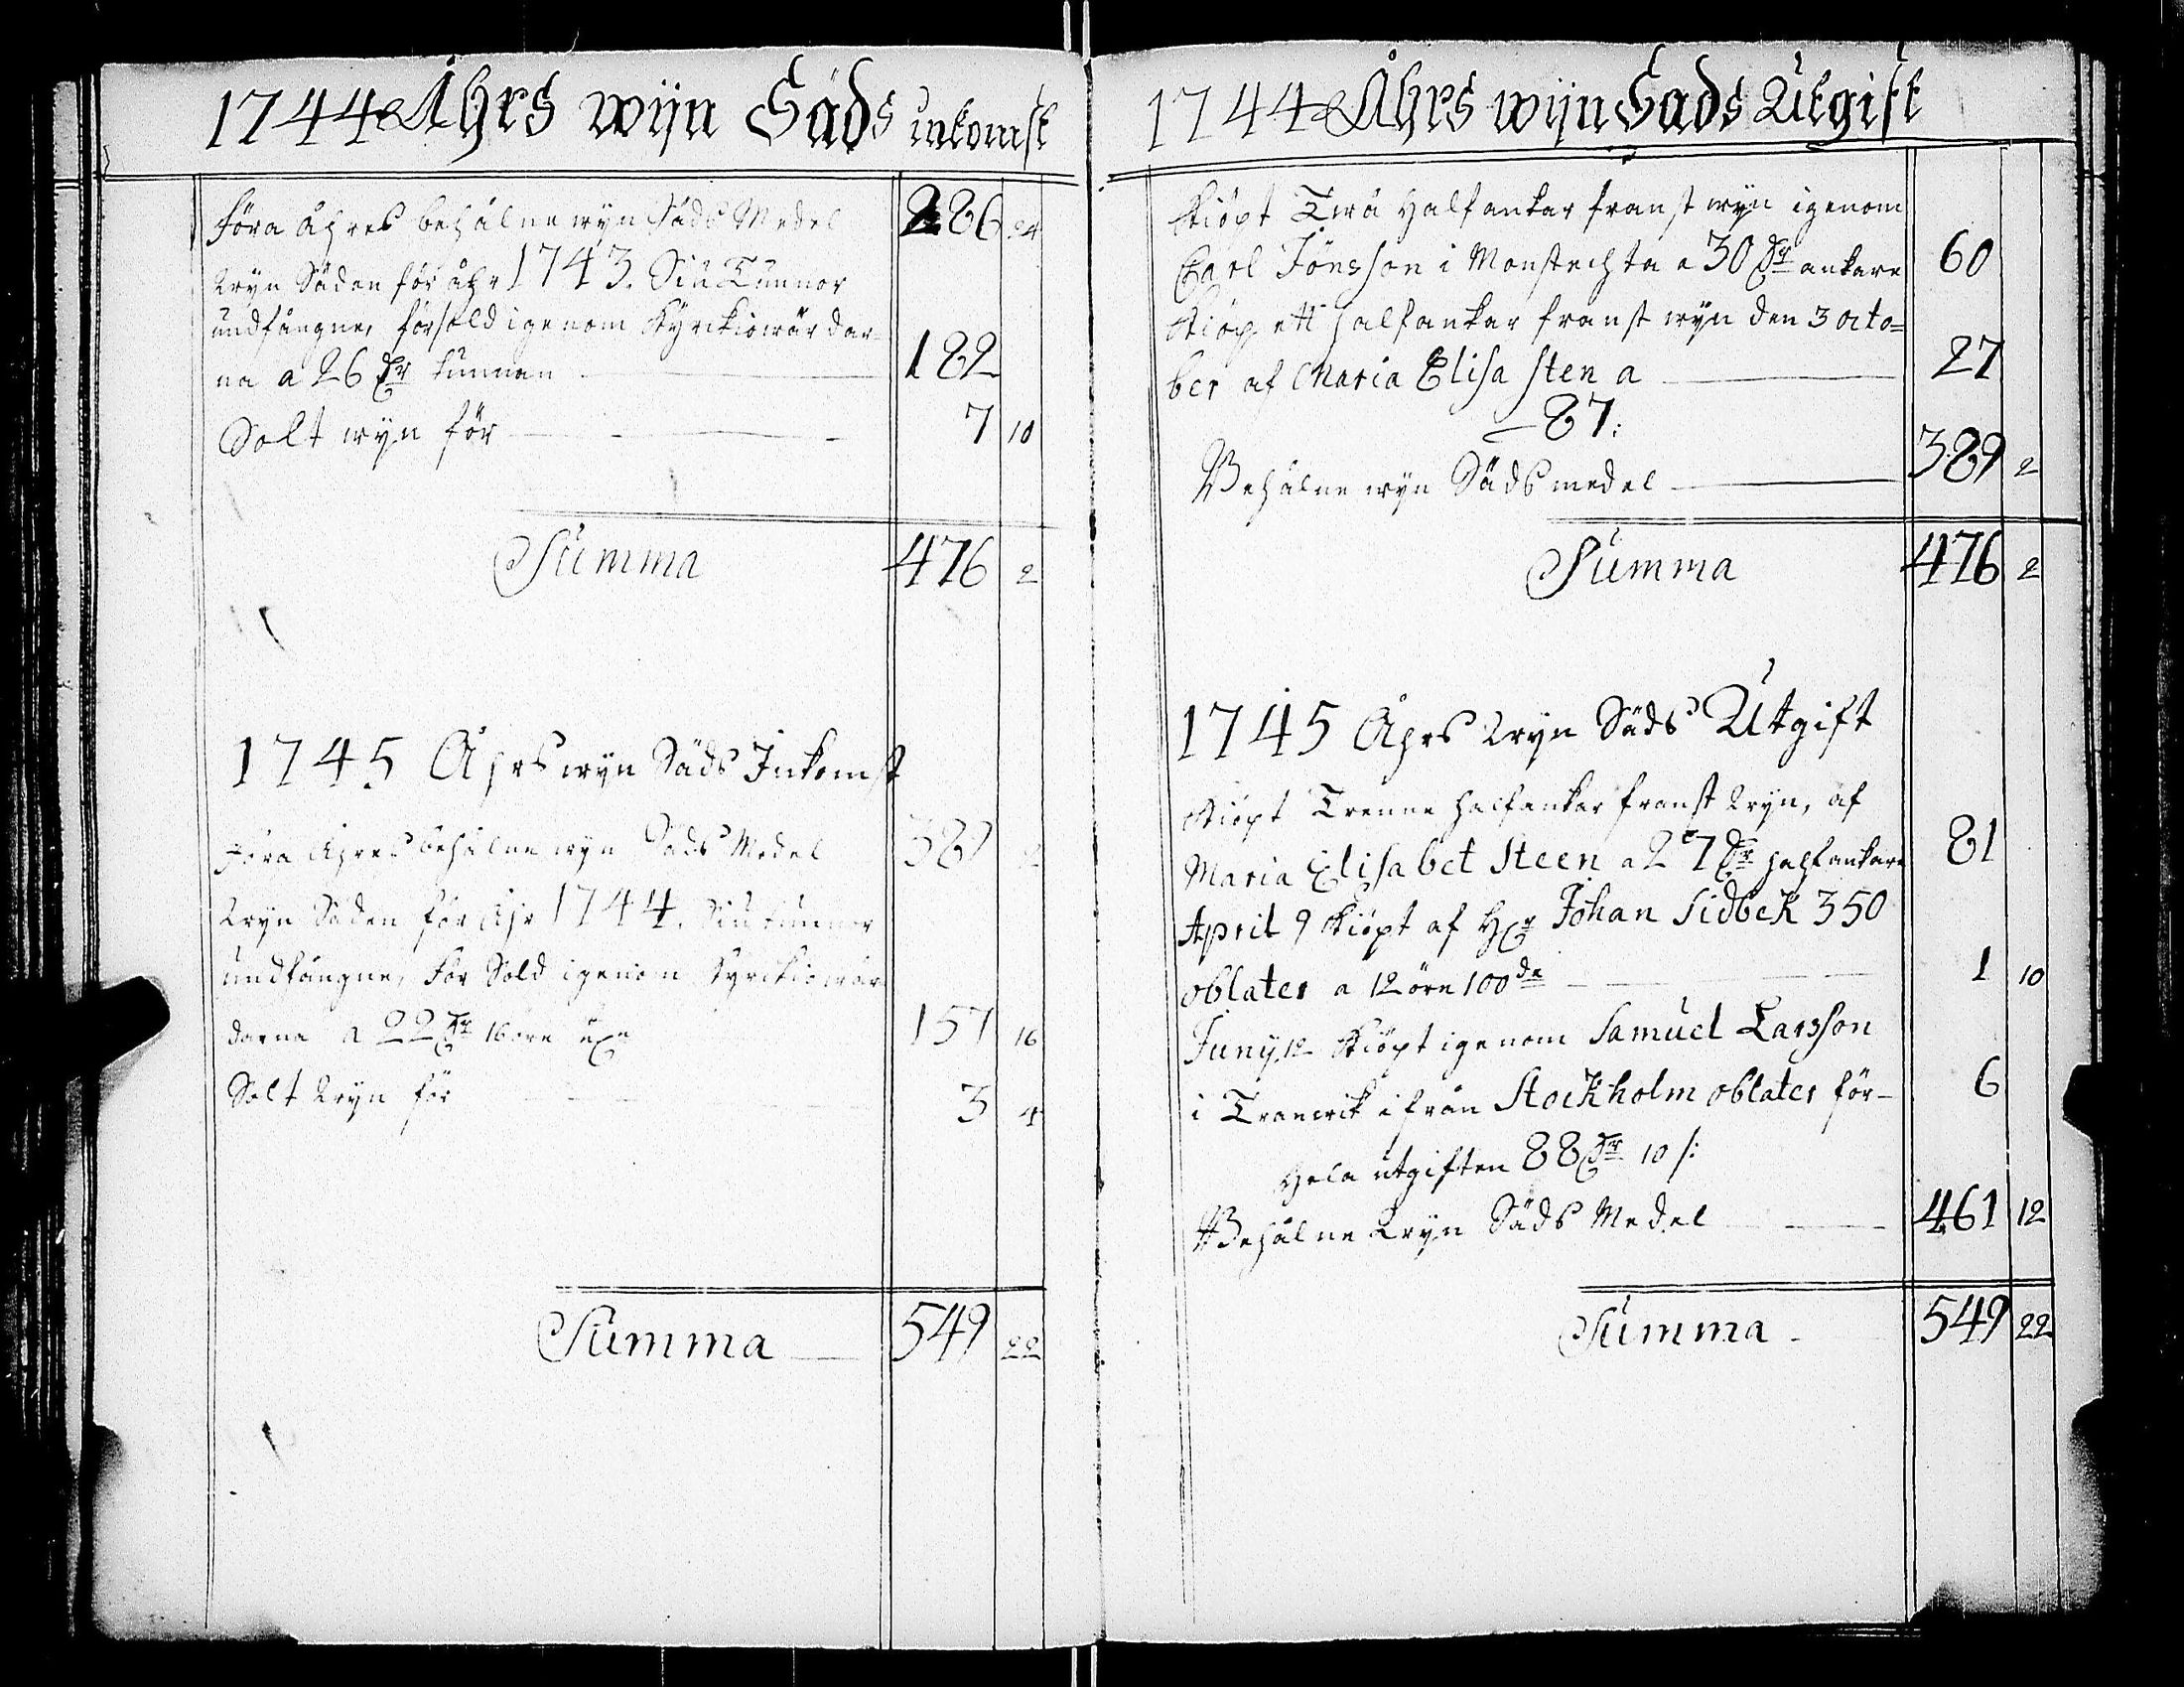 1744 Åhrs wijn Säds inkomst
Föra åhres behålne wyn Säds Medel 286 24
Wyn Säden för åhr 1743. Siu Tunnor
undfångne, försold igenom Kyrckiowärdar-
na a 26 Dr tunnan 182
Solt wyn för 7 10
Summa 476 2
1745 Åhrs wyn Säds Inkomst
Föra Åhres behålne wyn Säds Medel 389 2
Wyn Säden för Åhr 1744. Siu tunnor
undfångne, För Sold igenom Kyrckiowär
darna a 22 Dr 16 öre 157 16
Solt Wyn för 3 4
Summa 549 22
1744 Åhrs wijn Säds Utgift
Kiöpt Twå halfankar franst wyn igenom
Carl Jönsson i a 30 Dr ankare 60
Kiöp ett halfankar franst wyn den 3 octo=
ber af Maria Elisa sten a 27
87:
Behålne wyn Säds medel 389 2
Summa 476 2
1745 Åhrs Wyn Säds Utgift
Kiöpt Trenne halfankar franst Wyn, af
Maria Elisabet Steen a 27 Dr halfankare 81
April 9 Kiöpt af Hr Johan Sidbek 350
oblater a 12 öre 100de 1 10
Juny 12 Kiöpt igenom Samuel Larsson
i ifrån Stockholm oblater för- 6
Hela utgiften 88 Dr 10 /:
Behålne Wyn Säds Medel 461 12
Summa 549 22